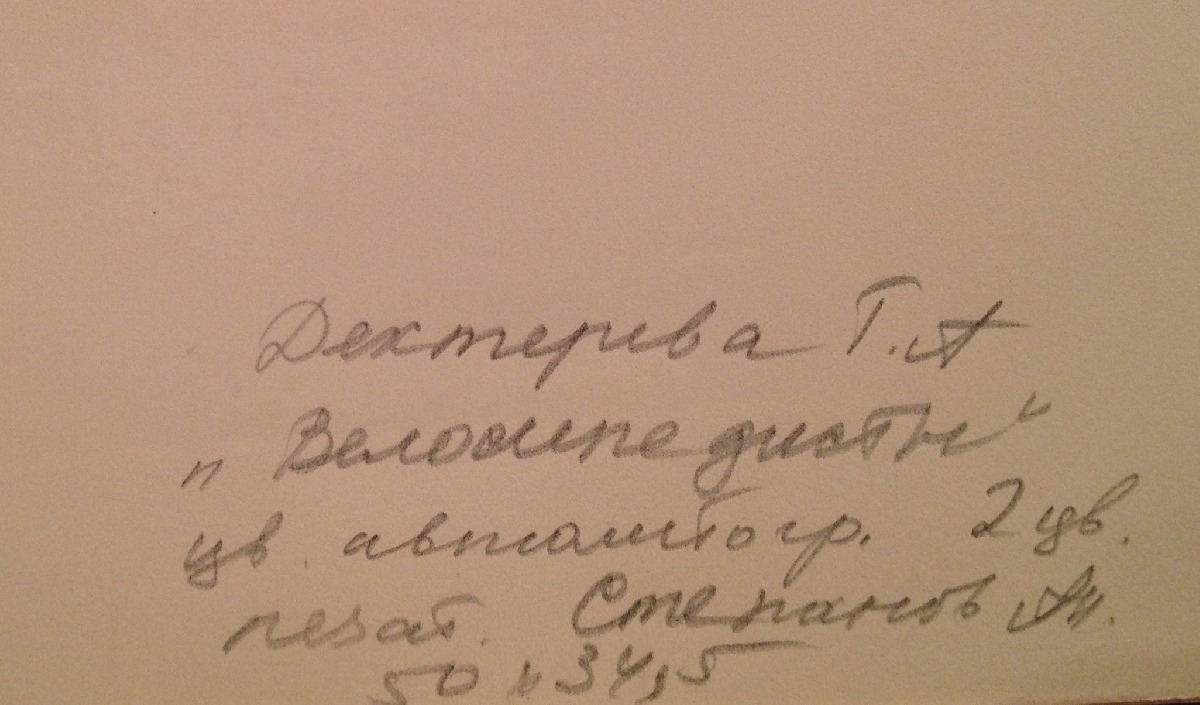 Дехтерева Т.А
„Велосипедисты“
цв. автолитогр. 2 цв.
печат. Степанов
50 х 34,5